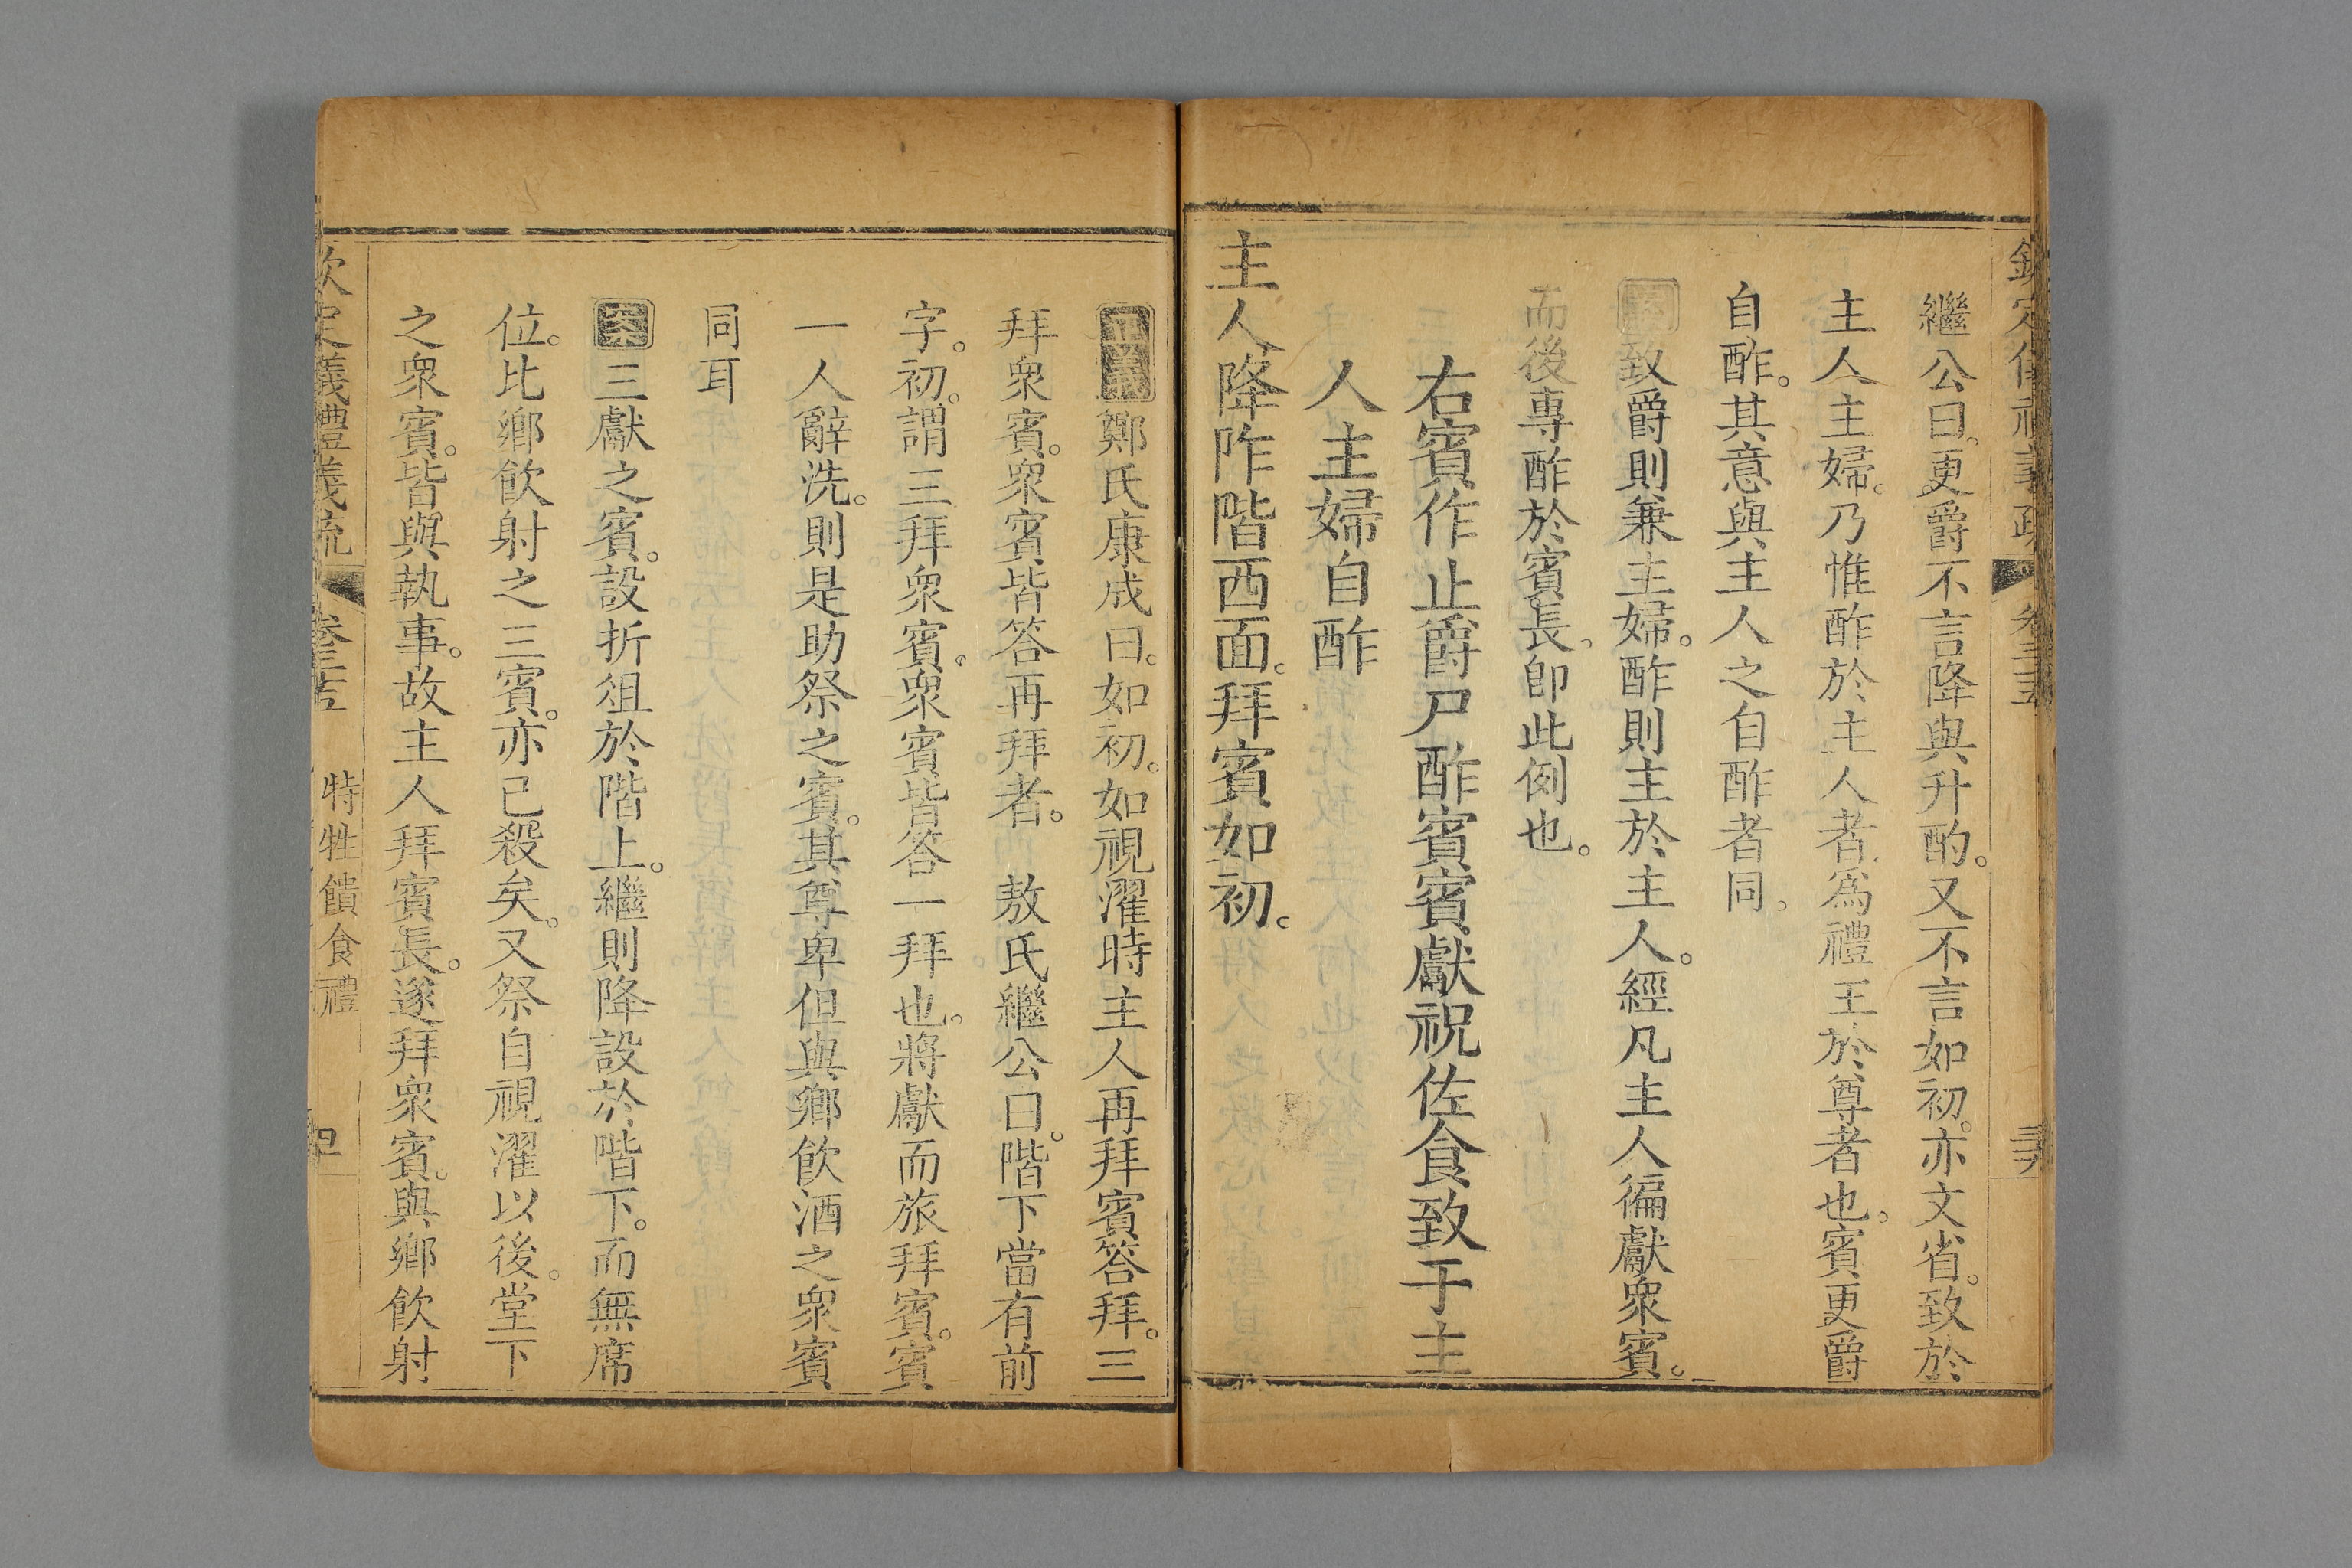 欽定儀禮義疏 卷三十五 三六
繼公曰。更爵不言降與升酌。又不言如初。亦文省。致於
主人主婦。乃惟酢於主人者。爲禮主於尊者也。賓更爵
自酢。其意與主人之自酢者同。
案致爵則兼主婦。酢則主於主人。經凡主人徧獻衆賓。
而後專酢於賓長。卽此例也。
右賓作止爵尸酢賓賓獻祝佐食致于主
人主婦自酢
主人降阼階西面。拜賓如初。
正義鄭氏康成曰。如初。如視濯時主人再拜賓答拜。三
拜衆賓。衆賓皆答再拜者。 敖氏繼公曰。階下當有前
字。初。謂三拜衆賓。衆賓皆答一拜也。將獻而旅拜賓。賓
一人辭洗。則是助祭之賓。其尊卑但與鄉飲酒之衆賓
同耳
案三獻之賓。設折俎於階上。繼則降設於階下。而無席
位。比鄉飲射之三賓。亦已殺矣。又祭自視濯以後。堂下
之衆賓。皆與執事。故主人拜賓長。遂拜衆賓。與鄉飲射
欽定義禮義疏 卷三十五 特牲饋食禮